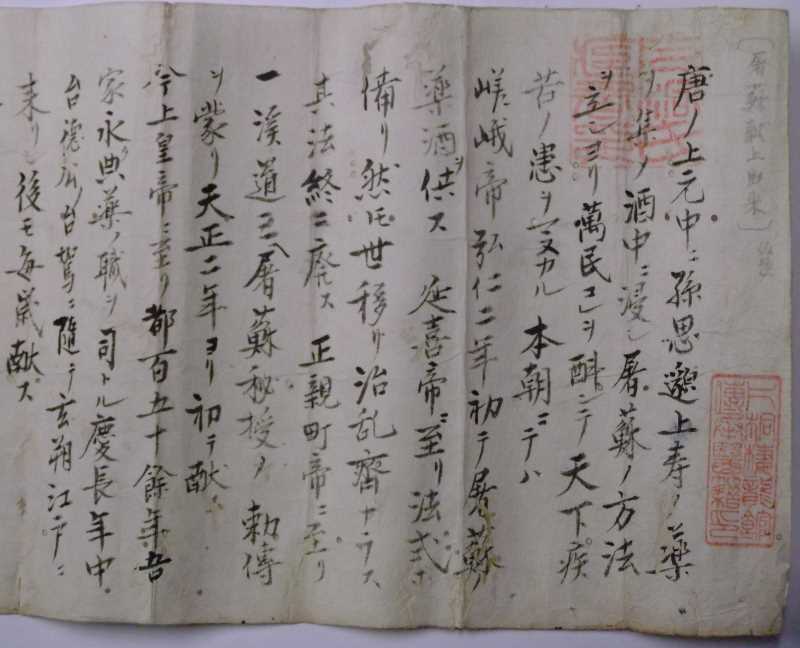 〔屠蘇献上由来〕
唐ノ上元中ニ孫思邈上寿ノ薬
ヲ集メ酒中ニ浸シ屠蘇ノ方法
ヲ立シヨリ萬民コレヲ酙シテ天下疾
苦ノ患ヲマヌカル本朝ニテハ
嵯峨帝弘仁二年初テ屠蘇ノ
薬酒ヲ供ス 延喜帝ニ至リ法式
備リ然モ世移リ治乱齊カラス
其法終ニ廃ス 正親町帝ニ至リ
一溪道三ヘ屠蘇秘授ノ勅傳
ヲ蒙リ天正二年ヨリ初テ献ス
今上皇帝ニ至リ都百五十餘年吾
家永典薬ノ職ヲ司トル慶長年中
台德公ノ台駕ニ随テ玄朔江戸ニ
来リシ後モ毎歳献ス